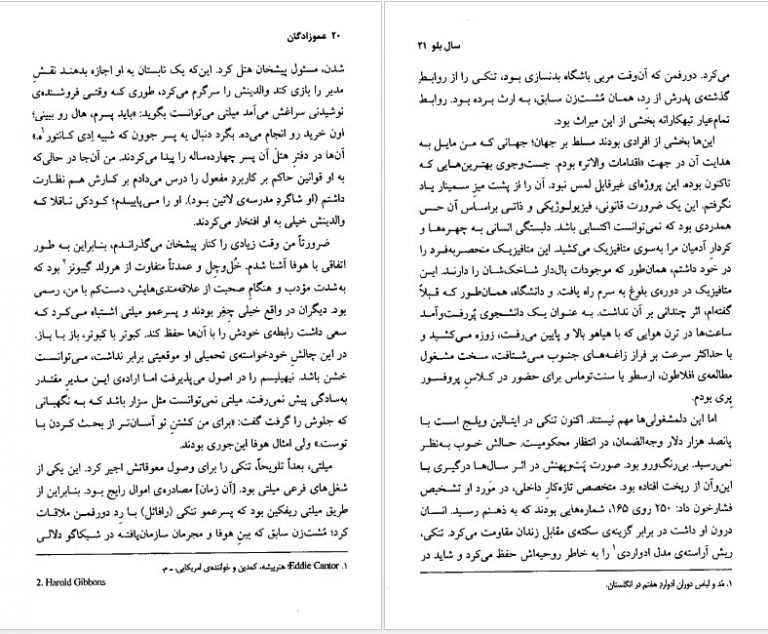 ۲۰ عموزادگان
شدن، مسئول پیشخان هتل کرد. این‌که یک تابستان به او اجازه بدهند نقشِ
مدیر را بازی کند والدینش را سرگرم می‌کرد، طوری که وقتی فروشنده‌ی
نوشیدنی سراغش می‌آمد میلتی می‌توانست بگوید: «باید پسرم، هال رو ببینی؛
اون خرید رو انجام می‌ده. بگرد دنبال یه پسر جوون که شبیه اِدی کانتور۱ه.»
آن‌ها در دفتر هتل آن پسر چهارده‌ساله را پیدا می‌کردند. من آن‌جا در حالی‌که
به او قوانین حاکم بر کاربردِ مفعول را درس می‌دادم بر کارش هم نظارت
داشتم (او شاگردِ مدرسه‌ی لاتین بود). او را می‌پاییدم؛ کودکی ناقلا که
والدینش خیلی به او افتخار می‌کردند.
ضرورتاً من وقت زیادی را کنار پیشخان می‌گذراندم، بنابراین به طور
اتفاقی با هوفا آشنا شدم. خُل‌وچِل و عمدتاً متفاوت از هرولد گیبونز۲ بود که
به‌شدت مؤدب و هنگامِ صحبت از علاقه‌مندی‌هایش، دست‌کم با من، رسمی
بود. دیگران در واقع خیلی چِغِر بودند و پسرعمو میلتی اشتباه می‌کرد که
سعی داشت رابطه‌ی خودش را با آن‌ها حفظ کند. کبوتر با کبوتر، باز با باز.
در این چالشِ خودخواسته‌ی تحمیلی او موقعیتی برابر نداشت، می‌توانست
خشن باشد. نیهیلیسم را در اصول می‌پذیرفت اما اراده‌ی این مدیرِ مقتدر
به‌سادگی پیش نمی‌رفت. میلتی نمی‌توانست مثل سزار باشد که به نگهبانی
که جلوش را گرفت گفت: «برای من کشتنِ تو آسان‌تر از بحث کردن با
توست.» ولی امثال هوفا این‌جوری بودند.
میلتی، بعداً تلویحاً، تنکی را برای وصول معوقاتش اجیر کرد. این یکی از
شغل‌های فرعی میلتی بود. [آن زمان] مصادره‌ی اموال رایج بود. بنابراین از
طریق میلتی ریفکین بود که پسرعمو تنکی (رافائل) با رِد دورفمن ملاقات
کرد؛ مُشت‌زن سابق که بینِ هوفا و مجرمان سازمان‌یافته در شیکاگو دلالی
۱. Eddie Cantor: هنرپیشه، کمدین و خواننده‌ی امریکایی. ـ م.
2. Harold Gibbons
سال بلو ۲۱
می‌کرد. دورفمن که آن‌وقت مربی باشگاه بدنسازی بود، تنکی را از روابطِ
گذشته‌ی پدرش از رِد، همان مُشت‌زن سابق، به ارث برده بود. روابط
تمام‌عیار تبهکارانه بخشی از این میراث بود.
این‌ها بخشی از افرادی بودند مسلط بر جهان؛ جهانی که من مایل به
هدایت آن در جهت «اقدامات والاتر» بودم. جست‌وجوی بهترین‌هایی که
تاکنون بوده. این پروژه‌ای غیرقابل لمس نبود. آن را از پشت میزِ سمینار یاد
نگرفتم. این یک ضرورت قانونی، فیزیولوژیکی و ذاتی براساس آن حس
همدردی بود که نمی‌توانست اکتسابی باشد. دلبستگی انسانی به چهره‌ها و
کردارِ آدمیان مرا به‌سوی متافیزیک می‌کشید. این متافیزیک منحصربه‌فرد را
در خود داشتم، همان‌طور که موجودات بال‌دار شاخک‌شان را دارند. این
متافیزیک در دوره‌ی بلوغ به سرم راه یافت. و دانشگاه، همان‌طور که قبلاً
گفته‌ام، اثر چندانی بر آن نداشت. به عنوان یک دانشجوی پُررفت‌وآمد
ساعت‌ها در ترن هوایی که با هیاهو بالا و پایین می‌رفت، زوزه می‌کشید و
با حداکثر سرعت بر فراز زاغه‌های جنوب می‌شتافت، سخت مشغول
مطالعه‌ی افلاطون، ارسطو یا سنت‌توماس برای حضور در کلاسِ پروفسور
پری بودم.
اما این دلمشغولی‌ها مهم نیستند. اکنون تنکی در ایتالین ویلیج است با
پانصد هزار دلار وجه‌الضمان، در انتظار محکومیت. حالش خوب به‌نظر
نمی‌رسید. بی‌رنگ‌ورو بود. صورت پَت‌وپهنش در اثر سال‌ها درگیری با
این‌وآن از ریخت افتاده بود. متخصص تازه‌کارِ داخلی، در مورد او تشخیص
فشارخون داد: ۲۵۰ روی ۱۶۵، شماره‌هایی بودند که به ذهنم رسید. انسان
درون او داشت در برابر گزینه‌ی سکته‌ی مقابل زندان مقاومت می‌کرد. تنکی،
ریش آراسته‌ی مدل ادواردی۱ را به خاطر روحیه‌اش حفظ می‌کرد و شاید در
۱. مُد و لباس دوران ادوارد هفتم در انگلستان.